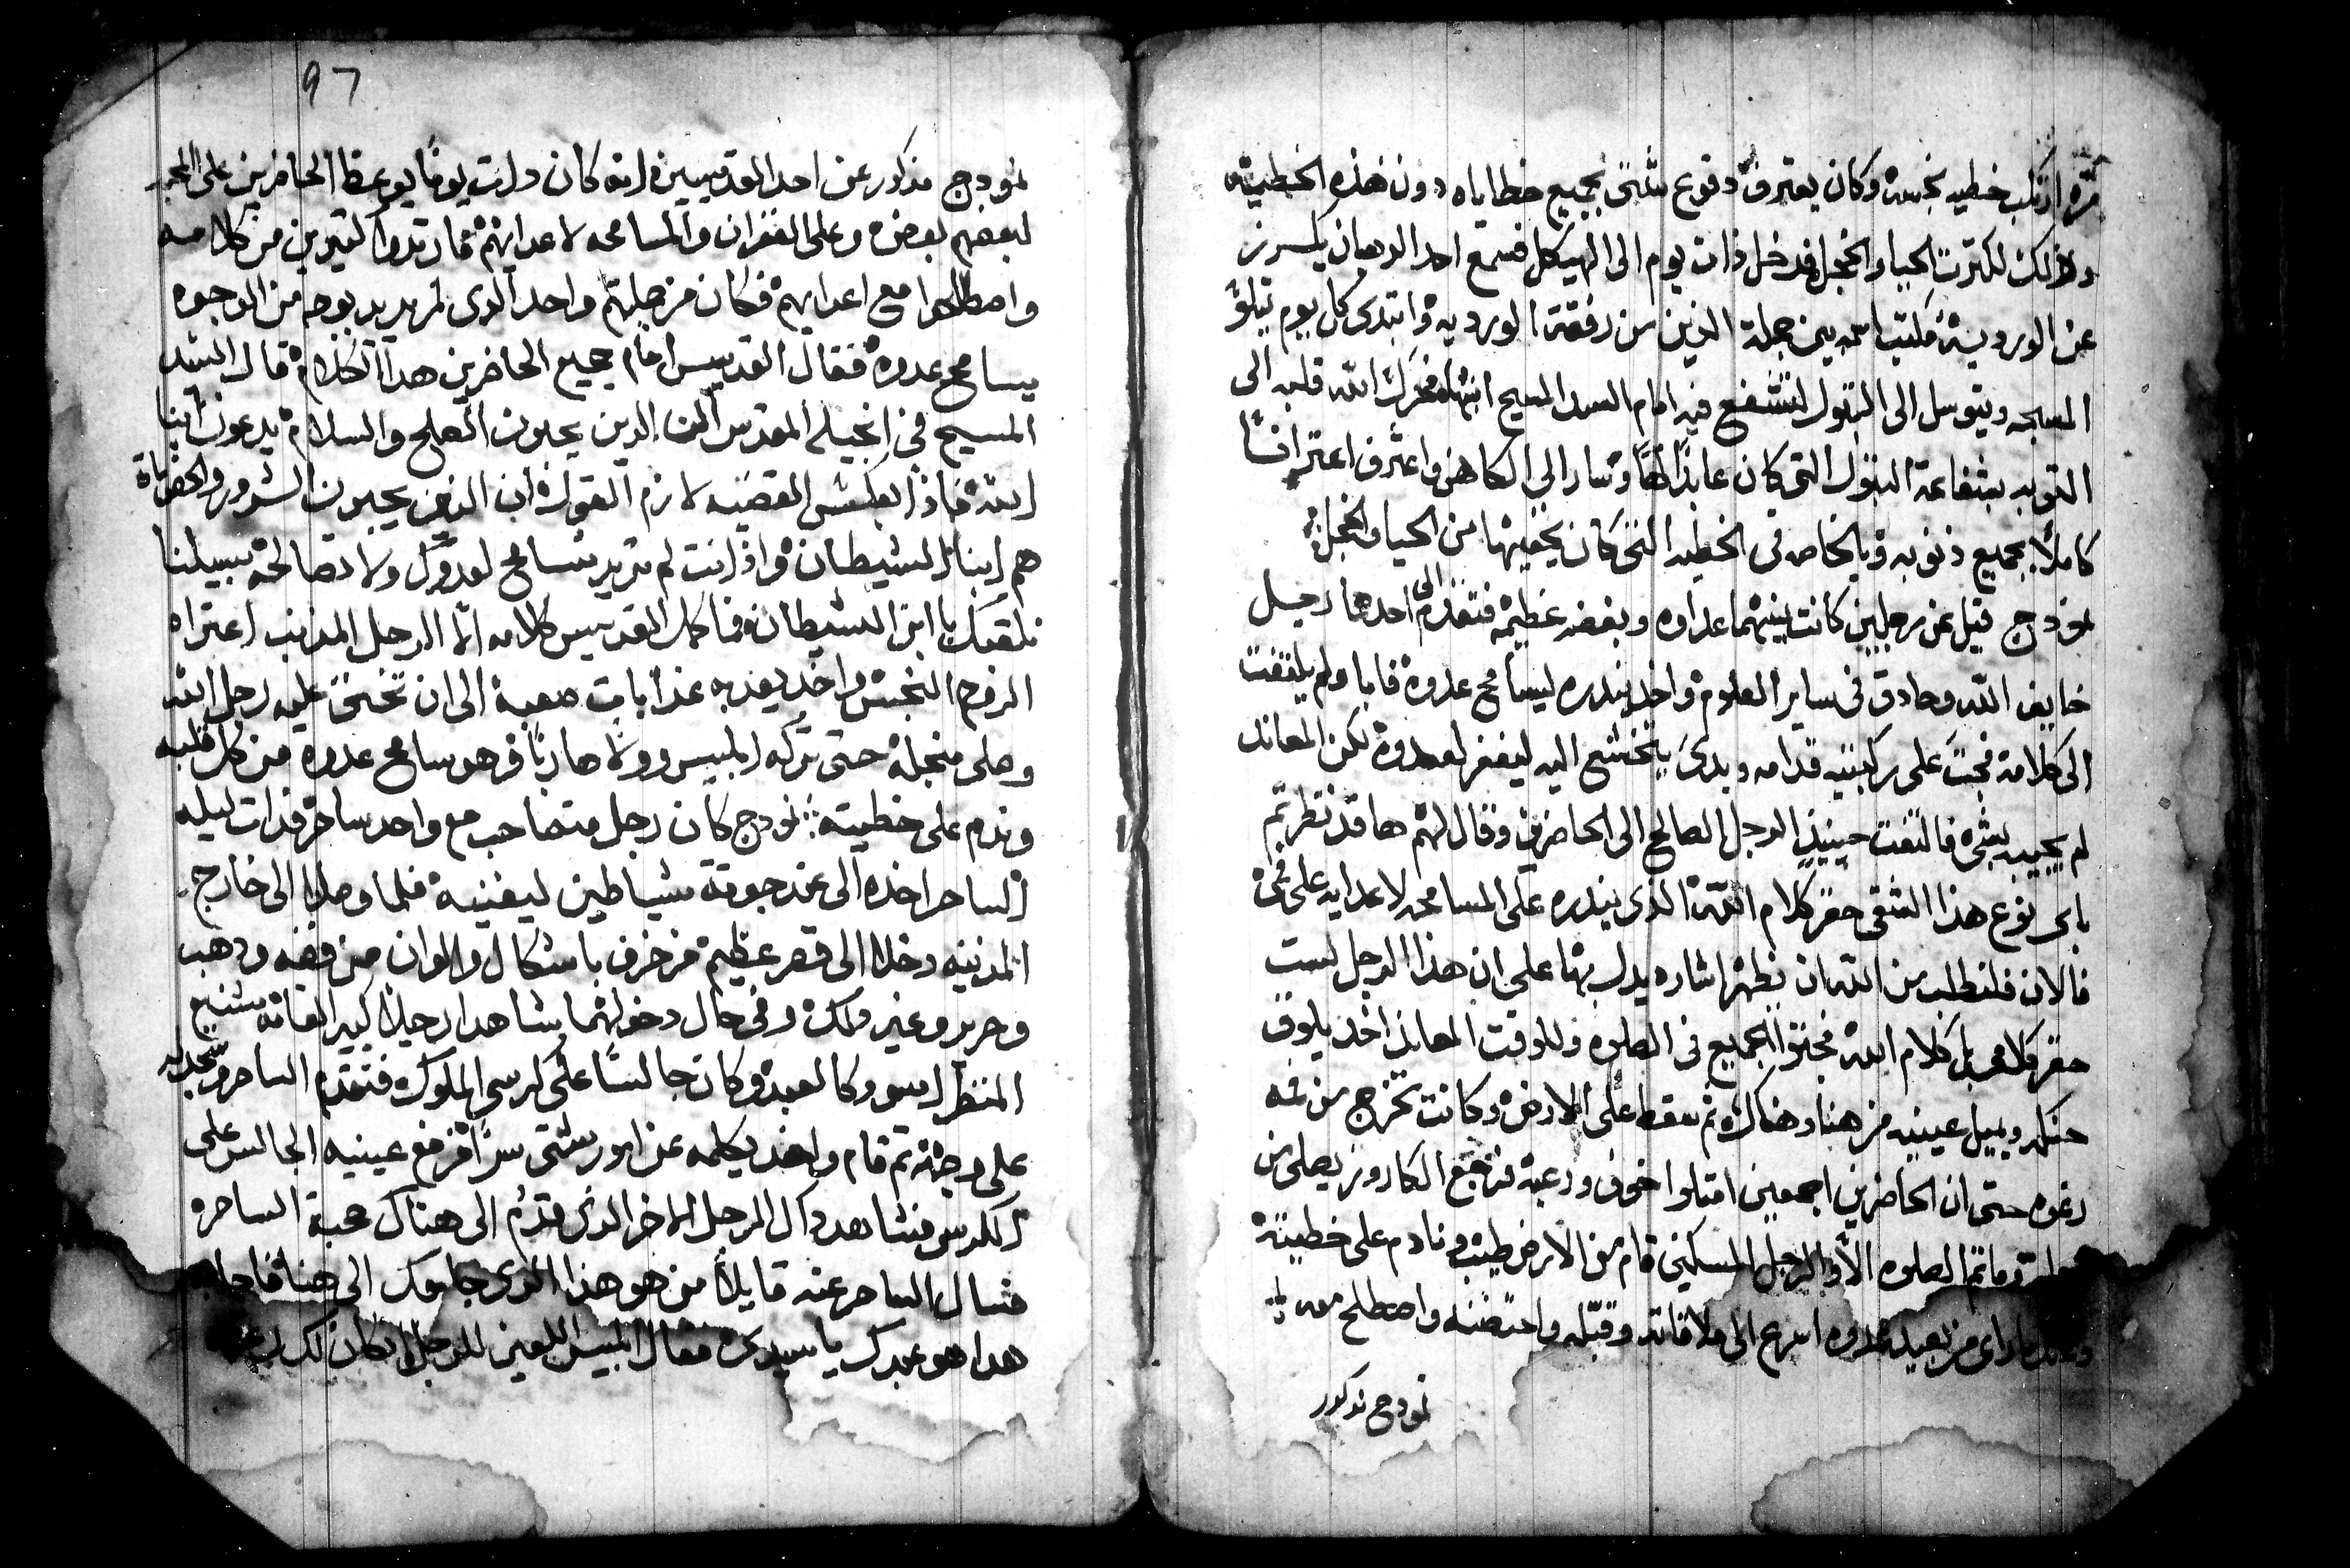 مرّه ارتكب خطيه نجسه وكان يعترف دفوع شتىّ بجميع خطاياه دون هذه الخطيّة
وذلك لكترت الحيا والخجل فدخل ذات يوم الى الهيكل فسمع احد الرهبان يكرز
عن الورديّة فكتب اسمه بين جملة الذين من رفقة الورديه وابتدى كل يوم يتلو
المسبحه ويتوسل الى البتول لتشفع فيه امام السيد المسيح ابنها فحرك الله قلبه الى
التوبه بشفاعة البتول التي كان عابدًا لها وسار الى الكاهن واعترف اعترافًا
كاملًا بجميع ذنوبه وبالخاصه في الخطيه التي كان يخفيها من الحيا والخجل
نمودج قيل عن رجلين كانت بينهما عداوه وبغضه عظيمه فتقدم الى احدهما رجل
خايف الله وحادق في ساير العلوم واخد ينذره ليسامح عدوه فابا ولم يلتفت
الى كلامه فجتى على ركبتيه قدامه وبدى يتخشع اليه ليغفر لعدوه لكن المعاند
لم يجيبه بشي فالتفت حينيذٍ الرجل الصالح الى الحاضرين وقال لهم ها قد نظرتم
باي نوع هذا الشقى حقر كلام الله الذي ينذره على المسامحه لاعدايه على
فالان فلنطلب من الله ان يظهر اشاره يدل بها على ان هذا الرجل ليست
حقر كلامي بل كلام الله فجتوا الجميع في الصلوه وللوقت المعاند اخد يلوق
حنكه ويميل عينيه من هنا وهناك ثم سقط على الارض وكانت تخرج من فمه
رغوه حتى ان الحاضرين اجمعين امتلوا خوف ورعبة فرجع الكاروز يصلى من
وماتم الصلوه الا والرجل المسكين قام من الارض طيب ونادم على خطيته
راى من بعيد عدوه اسرع الى ملاقاته وقبّله واحتضنه واصطلح معه
نمودج مذكور
97
نمودج مذكور عن احد القديسين انه كان دات يومًا يوعظ الحاضرين على
لبعضهم بعض وعلى الغفران والمسامحه لاعدايهم فارتدوا كتيرين من كلامه
واصطلحوا مع اعدايهم فكان من جلبتهم واحد الدى لم يريد بوجه من الوجوه
يسامح عدوه فقال القديس امام جميع الحاضرين هدا الكلام قال السيد
المسيح في انجيله المقدس ان الدين يحبون الصلح والسلام يدعون ابنا
الله فاذا بعكس القضيه لازم القول ان الذين يحبون الشرور
هم ابنا الشيطان واذ انت لم تريد تسامح لعدوك ولا تصالحه سبيلنا
نلقبك يا ابن الشيطان فما كمل القديس كلامه الا الرجل المذنب اعتراه
الروح النجس واخد يعذبه عذابات صعبة الى ان تحنن عليه رجل الله
وصلى منجله حتى تركه ابليس وولا هاربًا وهو سامح عدوه من كل قلبه
وندم على خطيته نمودج كان رجل متصاحب مع واحد ساحر فدات ليله
الساحر اخده الى عند جوقة شياطين ليغنيه فلما وصلا الى خارج
المدينه دخلا الى قصر عظيم مزخرف باشكال والوان من فضه ودهب
وحرير وغير دلك وفي حال دخولهما شاهدا رجلًا كبير القامه شنيع
المنظر اسود كالعبد وكان جالسًا على كرسى الملوك فتقدم الساحر وسجد له
على وجهه تم قام واخد يكلمه عن امور شتى سرًا فرفع عينيه الجالس على
الكرسى فشاهد داك الرجل الاخر الدى قدم الى هناك صحبة الساحر
فسال الساحر عنه قايلًا من هو هذا الدى جا معك الى هنا فاجابه
هدا هو عبدك يا سيدى فقال ابليس اللعين للرجل ان كان لك